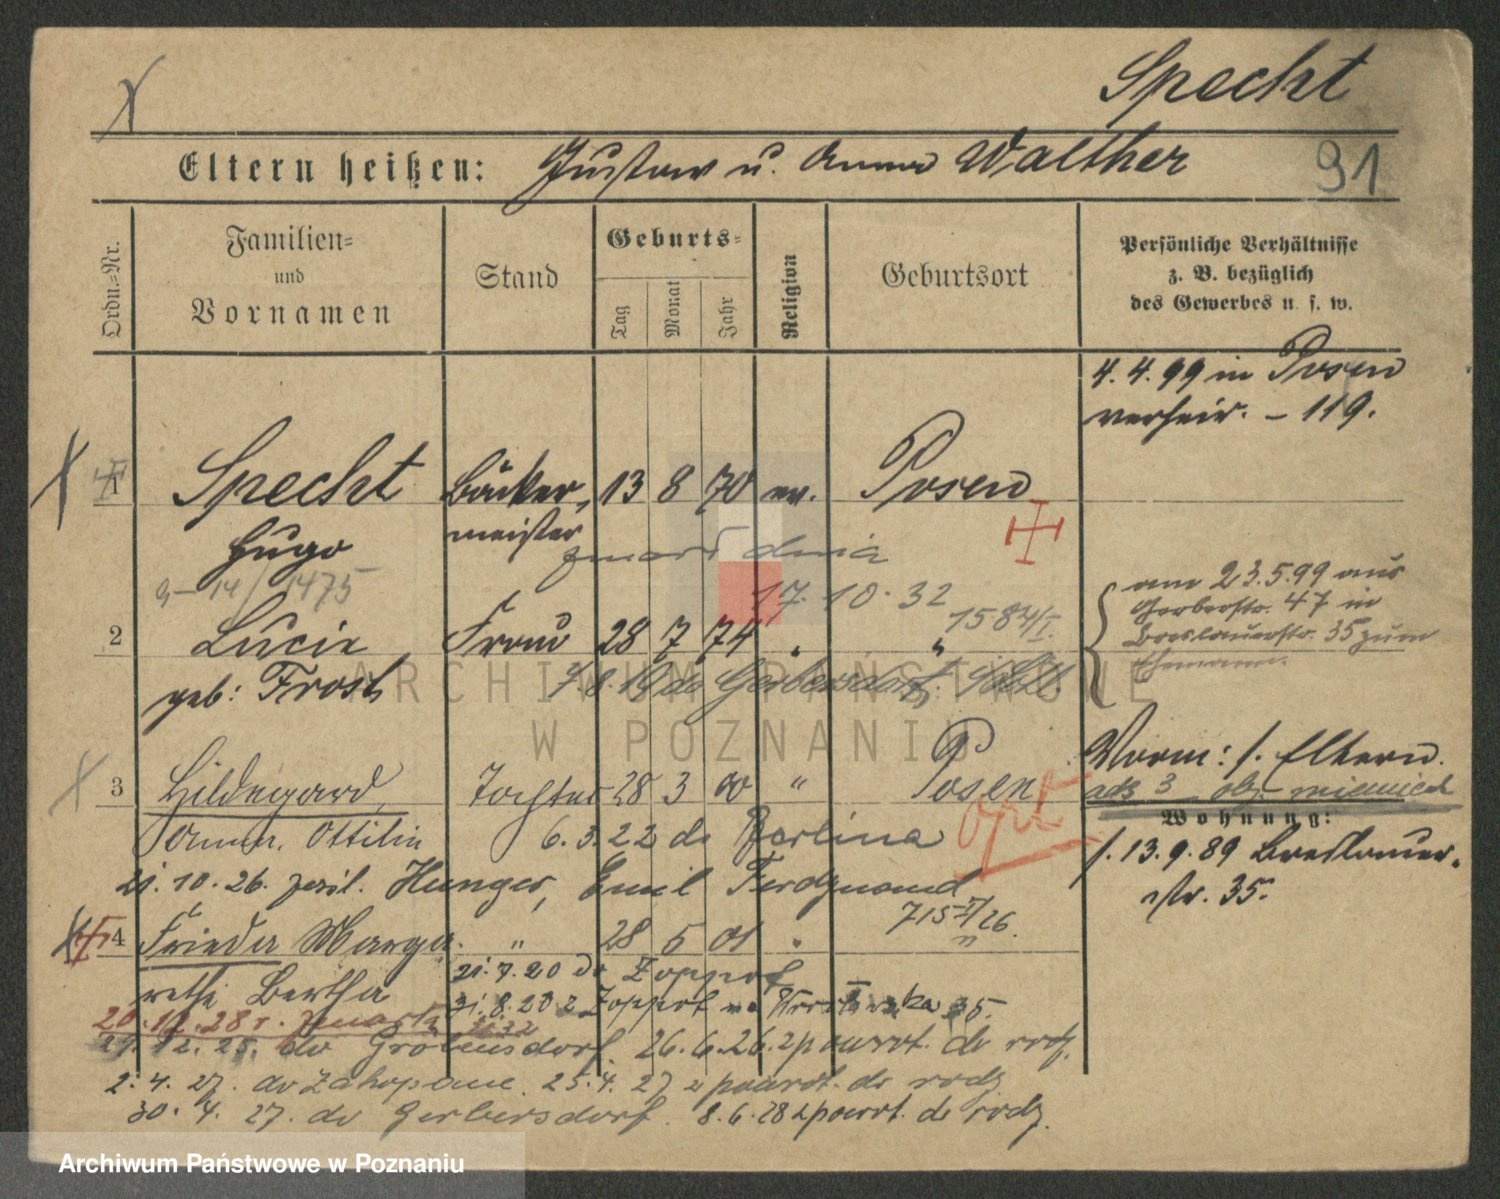 Specht
Eltern heißen: Gustav u. Anna Walther
91
Ordn.-Nr.
Familien-
und
Vornamen
Stand
Geburts-
Tag
Monat
Jahr
Religion
Geburtsort
Persönliche Verhältnisse
z. B. bezüglich
des Gewerbes u. s. w.
4. 4. 99 in Posen
verheir. – 119.
1 Specht Bäcker- 13 8 70 ev. Posen
meister
Hugo
zmarł dnia
14/1475
17. 10. 32
am 23.5.99 aus
Gerberstr. 47 in
Breslauerstr. 35 zum
Ehemann.
1584/I.
2 Lucie Frau 28 7 74 " "
geb: Frost 7.8.19 do Gerbersdorf
ARCHIWUM PAŃSTWOWE
W POZNANIU
Vorm: s. Eltern.
3 Hildegard, Tochter 28 3 00 " Posen
opt
Wohnung:
Anna, Ottilie 6. 3. 22 do Berlina
s. 13. 9. 89 Breslauer-
str. 35.
21. 10. 26. Hunger, Emil Ferdynand
715 /26.
4 Frieda Marga- " 28 5 01 "
rethe Bertha 21. 7. 20 do Zoppot
31. 8. 20 z Zoppot 35.
20. 12. 28 r. zmarła
29. 12. 25. do Görbersdorf. 26. 6. 26. z powrot. do rodz.
2. 4. 27. do Zakopane. 25. 4. 27 z powrot. do rodz
30. 4. 27. do Gerbersdorf. 8. 6. 28 z powrot. do rodz.
Archiwum Państwowe w Poznaniu